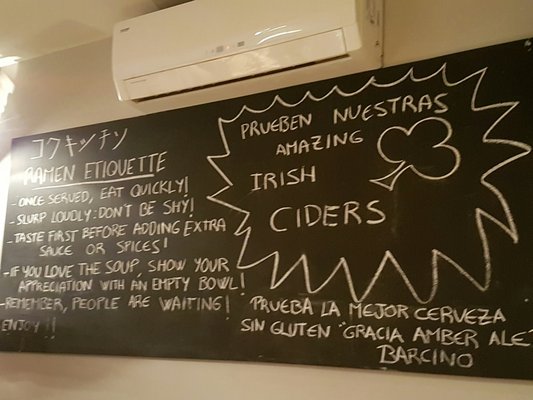 コクキッチン
RAMEN ETIQUETTE
- ONCE SERVED, EAT QUICKLY!
- SLURP LOUDLY: DON'T BE SHY!
- TASTE FIRST BEFORE ADDING EXTRA
SAUCE OR SPICES!
- IF YOU LOVE THE SOUP, SHOW YOUR
APPRECIATION WITH AN EMPTY BOWL!
- REMEMBER, PEOPLE ARE WAITING!
ENJOY!!
PRUEBEN NUESTRAS
AMAZING
IRISH
CIDERS
PRUEBA LA MEJOR CERVEZA
SIN GLUTEN "GRACIA AMBER ALE"
BARCINO